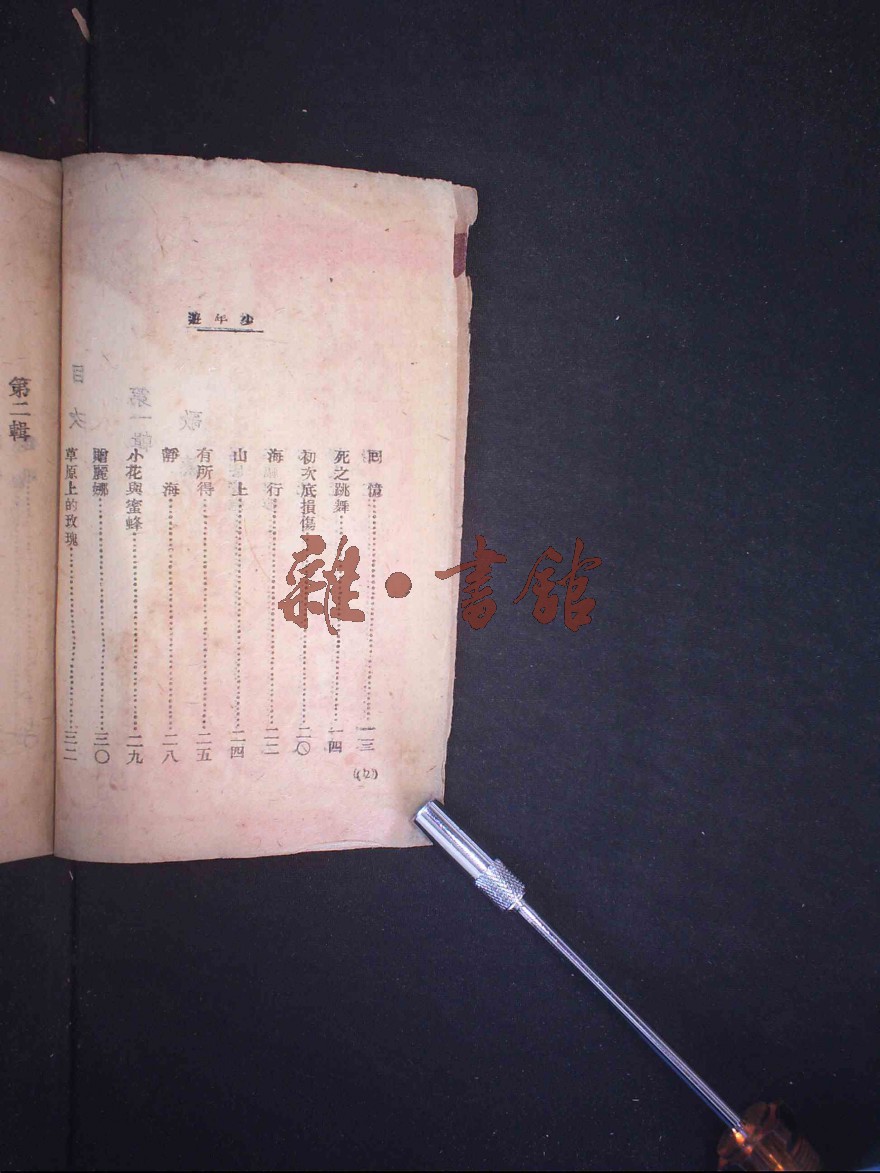 少年遊
回憶……一三
死之跳舞……一四
初次底損傷……二〇
海行……二二
山上……二四
有所得……二五
靜海……二八
小花與蜜蜂……二九
贈麗娜……三〇
草原上的玫瑰……三二
(2)
第二輯
雜·書館